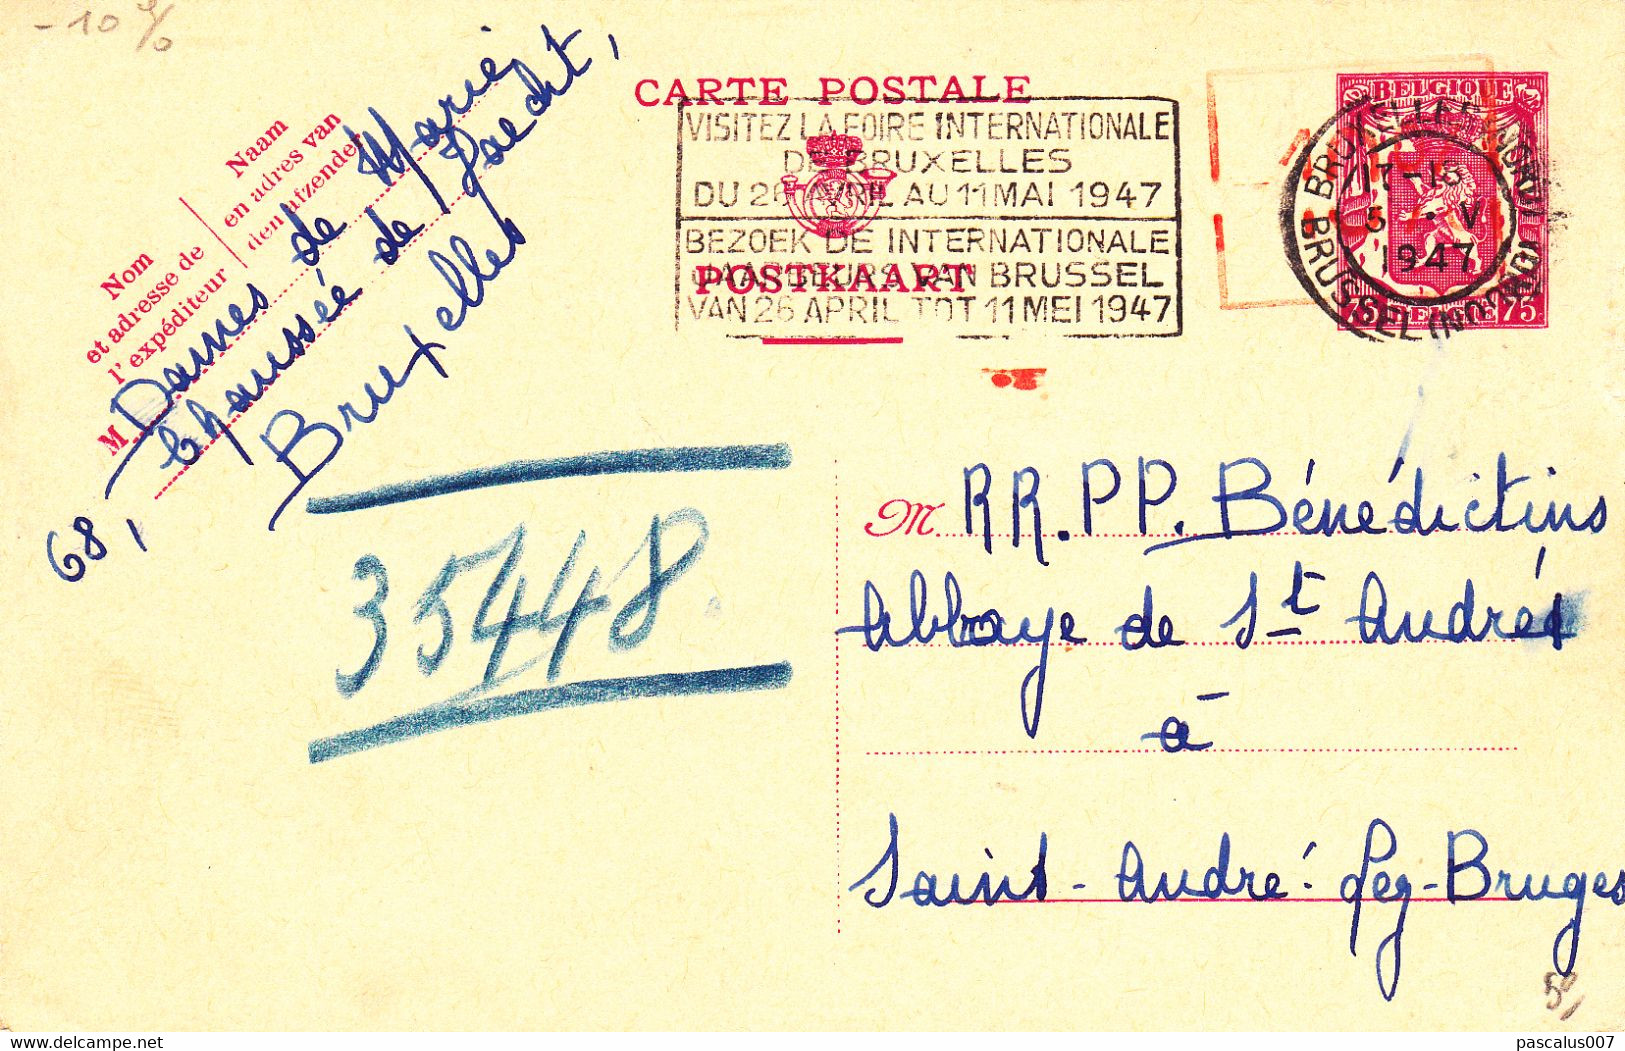 -10%
CARTE POSTALE
VISITEZ LA FOIRE INTERNATIONALE
DE BRUXELLES
DU 26 AVRIL AU 11 MAI 1947
BEZOEK DE INTERNATIONALE
JAARBEURS VAN BRUSSEL
VAN 26 APRIL TOT 11 MEI 1947
POSTKAART
BELGIQUE
75 BELGIE 75
BRUXELLES (NORD)
17-18
5 - V
1947
BRUSSEL (NOORD)
Naam
en adres van
den afzender
Nom
et adresse de
l'expéditeur
M Dames de Marie
68, Chaussée de Haecht,
Bruxelles
35448
M RR. PP. Bénédictins
Abbaye de St André
à
Saint-André-lez-Bruges
pascalus007